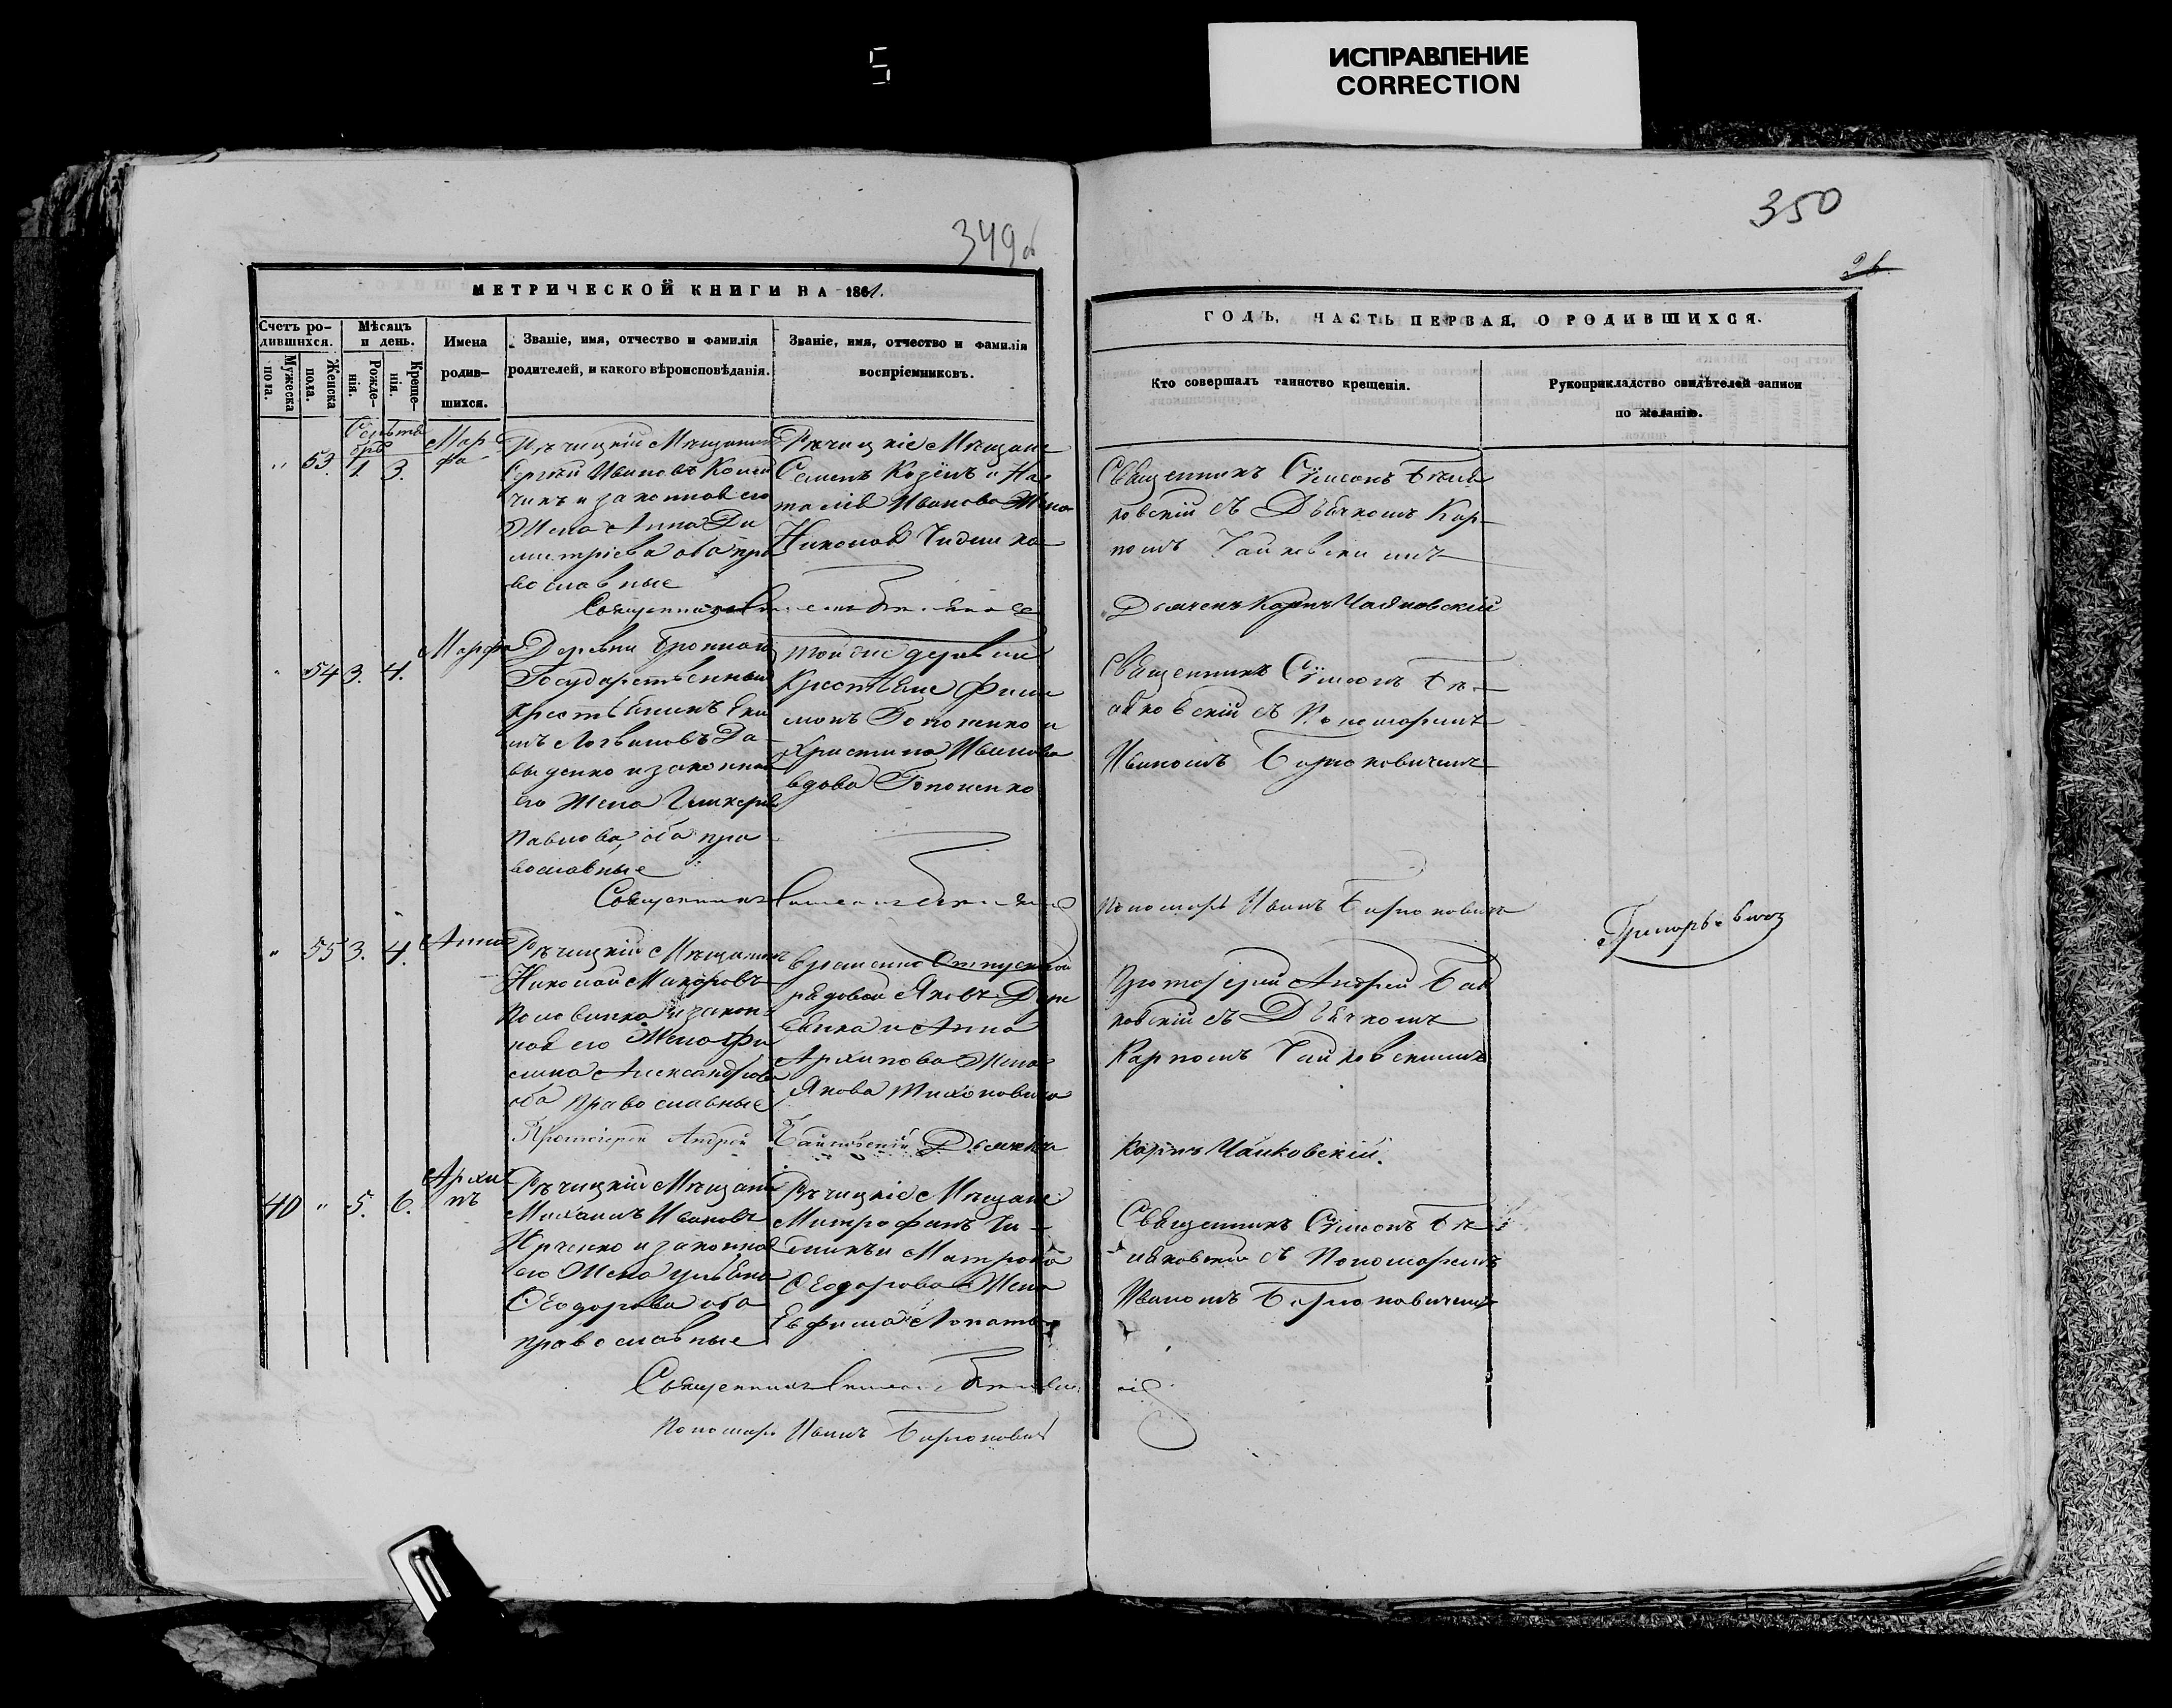 ИСПРАВЛЕНИЕ
CORRECTION
5
349об
350
26
МЕТРИЧЕСКОЙ КНИГИ НА 1861.
Счетъ ро-
дившихся.
Мужеска
пола.
Женска
пола.
Мѣсяцъ
и день.
Рожде-
нія.
Креще-
нія.
Имена
родив-
шихся.
Званіе, имя, отчество и фамилія
родителей, и какого вѣроисповѣданія.
Званіе, имя, отчество и фамилія
воспріемниковъ.
ГОДЪ, ЧАСТЬ ПЕРВАЯ, О РОДИВШИХСЯ.
Кто совершалъ таинство крещенія.
Рукоприкладство свидѣтелей записи
по желанію.
Сентя
брь
" 53. 1. 3.
Мар
фа
Рѣчицкій Мѣщанинъ
Сергѣй Ивановъ
чикъ и законная его
Жена Анна Ди
митріева оба пра
вославные
Рѣчицкіе Мѣщане
Семенъ Козелъ и На
талія Иванова Жена
Николая
Священникъ Сѵмеонъ Бѣля
ковскій съ Дьячкомъ Кар-
помъ Чайковскимъ
Священникъ
Дьячекъ Карпъ Чайковскій
" 54 3. 4.
Марфа
Деревни Бронной
Государственный
крестьянинъ Еки
мъ Логвиновъ Да-
выденко и законная
его Жена Гликерія
Павлова, оба пра
вославные
Той же деревни
Крестьяне Фили
монъ Гопоненко и
Христина Иванова
вдова Гопоненко
Священникъ Сѵмеонъ Бѣ-
ляковскій съ Пономаремъ
Иваномъ Бирюковичемъ
Священникъ
Пономарь Иванъ Бирюковичъ
Григорьевичъ
" 55 3. 4.
Анна
Рѣчицкій Мѣщанинъ
Николай Макаровъ
Половинка и закон-
ная его Жена Фи
Александрова
оба православные
Временно Отпускной
рядовой Яковъ
и Анна
Архипова Жена
Якова Тихоновича
Протоіерей Андрей
ковскій съ Дьячкомъ
Карпомъ Чайковскимъ
Протоіерей Андрей
Дьячекъ
Карпъ Чайковскій.
40 " 5. 6.
Архи
пъ
Рѣчицкій Мѣщанинъ
Михаилъ Ивановъ
и законная
его Жена Ульяна
Ѳеодорова оба
православные
Рѣчицкіе Мѣщане
Митрофанъ
и Матрона
Ѳеодорова Жена
Ефима
Священникъ Сѵмеонъ Бѣ
ляковскій съ Пономаремъ
Иваномъ Бирюковичемъ
Священникъ
Пономарь Иванъ Бирюковичъ